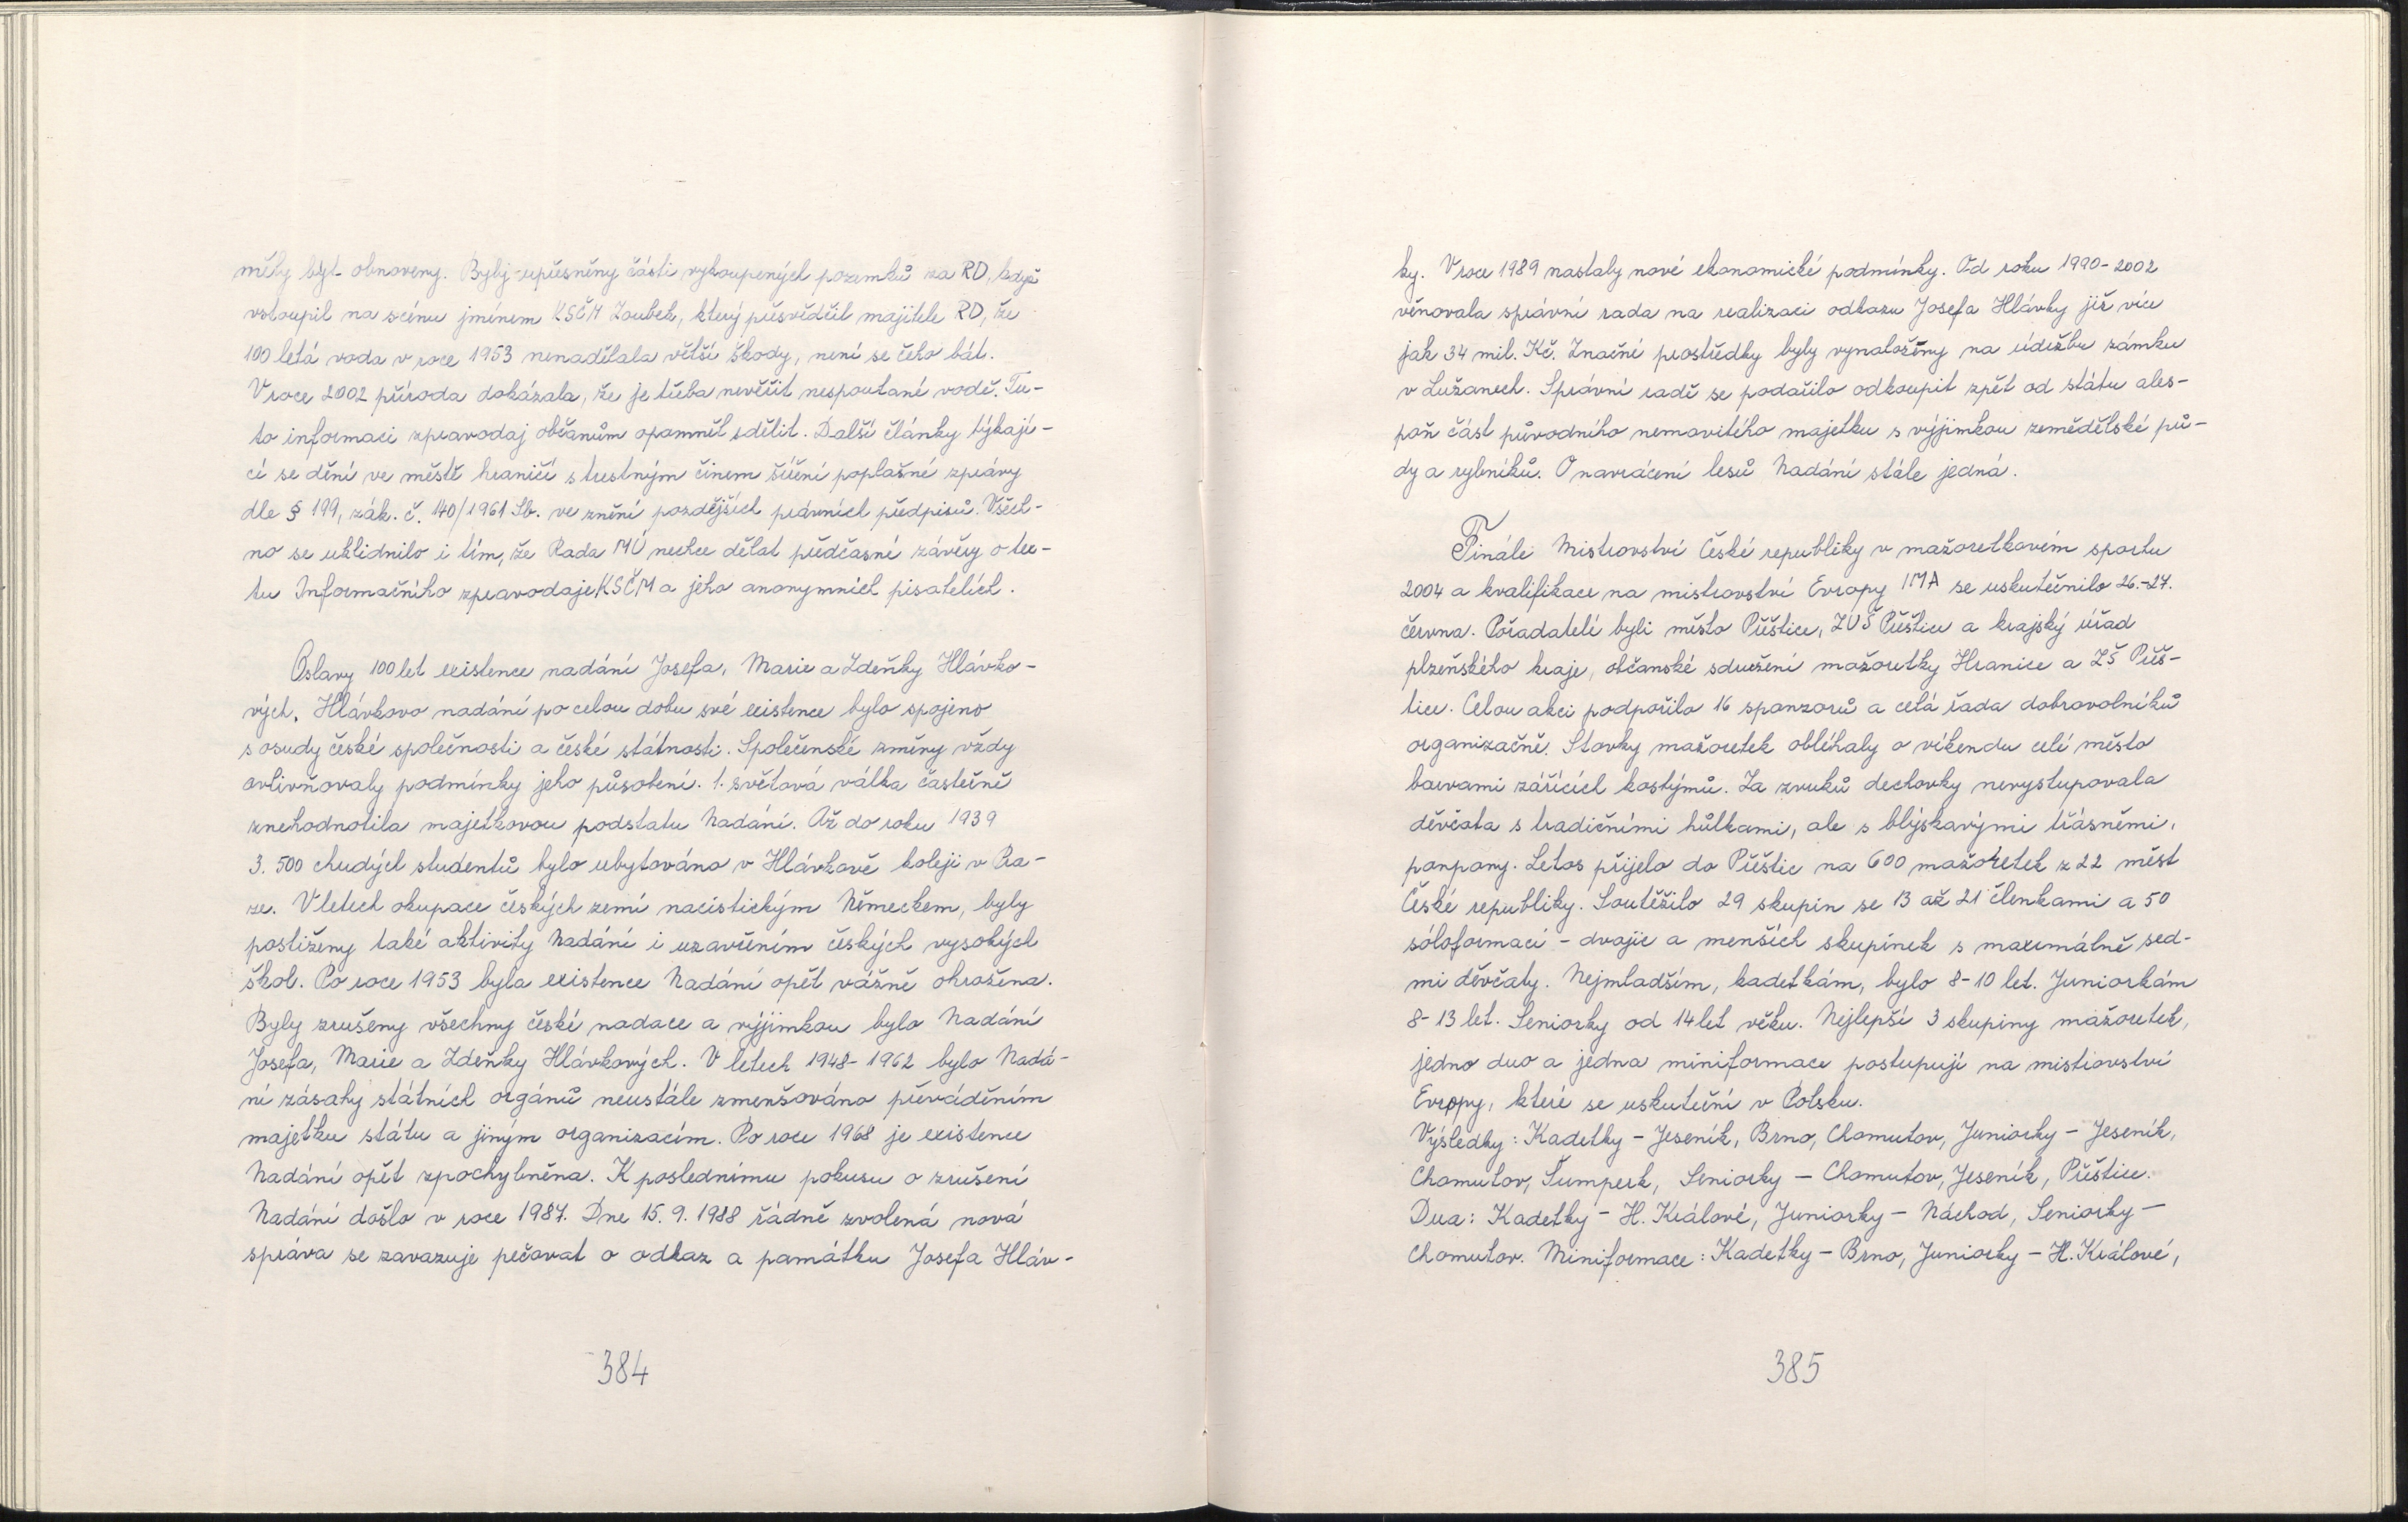 měly být obnoveny. Byly upřesněny části vykoupených pozemků za RD, když
vstoupil na scénu jménem KSČM Zoubek, který přesvědčil majitele RD, že
100 letá voda v roce 1953 nenadělala větší škody, není se čeho bát.
V roce 2002 příroda dokázala, že je třeba nevěřit nespoutané vodě. Tu-
to informaci zpravodaj občanům opomněl sdělit. Další články týkají-
cí se dění ve městě hraničí s trestným činem šíření poplašné zprávy
dle § 199, zák. č. 140/1961 Sb. ve znění pozdějších právních předpisů. Všech-
no se uklidnilo i tím, že Rada MÚ nechce dělat předčasné závěry o tex-
tu Informačního zpravodaje KSČM a jeho anonymních pisatelích.
Oslavy 100 let existence nadání Josefa, Marie a Zdeňky Hlávko-
vých. Hlávkovo nadání po celou dobu své existence bylo spojeno
s osudy české společnosti a české státnosti. Společenské změny vždy
ovlivňovaly podmínky jeho působení. 1. světová válka částečně
znehodnotila majetkovou podstatu Nadání. Až do roku 1939
3.500 chudých studentů bylo ubytováno v Hlávkově koleji v Pra-
ze. V letech okupace českých zemí nacistickým Německem, byly
postiženy také aktivity Nadání i uzavřením českých vysokých
škol. Po roce 1953 byla existence Nadání opět vážně ohrožena.
Byly zrušeny všechny české nadace a výjimkou bylo Nadání
Josefa, Marie a Zdeňky Hlávkových. V letech 1948-1962 bylo Nadá-
ní zásahy státních orgánů neustále zmenšováno převáděním
majetku státu a jiným organizacím. Po roce 1968 je existence
Nadání opět zpochybněna. K poslednímu pokusu o zrušení
Nadání došlo v roce 1987. Dne 15. 9. 1988 řádně zvolená nová
správa se zavazuje pečovat o odkaz a památku Josefa Hláv-
384
ky. V roce 1989 nastaly nové ekonomické podmínky. Od roku 1990-2002
věnovala správní rada na realizaci odkazu Josefa Hlávky již více
jak 34 mil. Kč. Značné prostředky byly vynaloženy na údržbu zámku
v Lužanech. Správní radě se podařilo odkoupit zpět od státu ales-
poň část původního nemovitého majetku s výjimkou zemědělské pů-
dy a rybníků. O navrácení lesů Nadání stále jedná.
Finále Mistrovství České republiky v mažoretkovém sportu
2004 a kvalifikace na mistrovství Evropy IMA se uskutečnilo 26.-27.
června. Pořadatelé byli město Přeštice, ZUŠ Přeštice a krajský úřad
plzeňského kraje, občanské sdružení mažoretky Hranice a ZŠ Přeš-
tice. Celou akci podpořilo 16 sponzorů a celá řada dobrovolníků
organizačně. Stovky mažoretek obléhaly o víkendu celé město
barvami zářících kostýmů. Za zvuků dechovky nevystupovala
děvčata s tradičními hůlkami, ale s blýskavými třásněmi,
ponpony. Letos přijelo do Přeštic na 600 mažoretek z 22 měst
České republiky. Soutěžilo 29 skupin se 13 až 21 členkami a 50
sóloformací - dvojic a menších skupinek s maximálně sed-
mi děvčaty. Nejmladším, kadetkám, bylo 8-10 let. Juniorkám
8-13 let. Seniorky od 14 let věku. Nejlepší 3 skupiny mažoretek,
jedno duo a jedna miniformace postupují na mistrovství
Evropy, které se uskuteční v Polsku.
Výsledky: Kadetky - Jeseník, Brno, Chomutov, Juniorky - Jeseník,
Chomutov, Šumperk, Seniorky - Chomutov, Jeseník, Přeštice.
Dua: Kadetky - H. Králové, Juniorky - Náchod, Seniorky -
Chomutov. Miniformace: Kadetky - Brno, Juniorky - H. Králové,
385